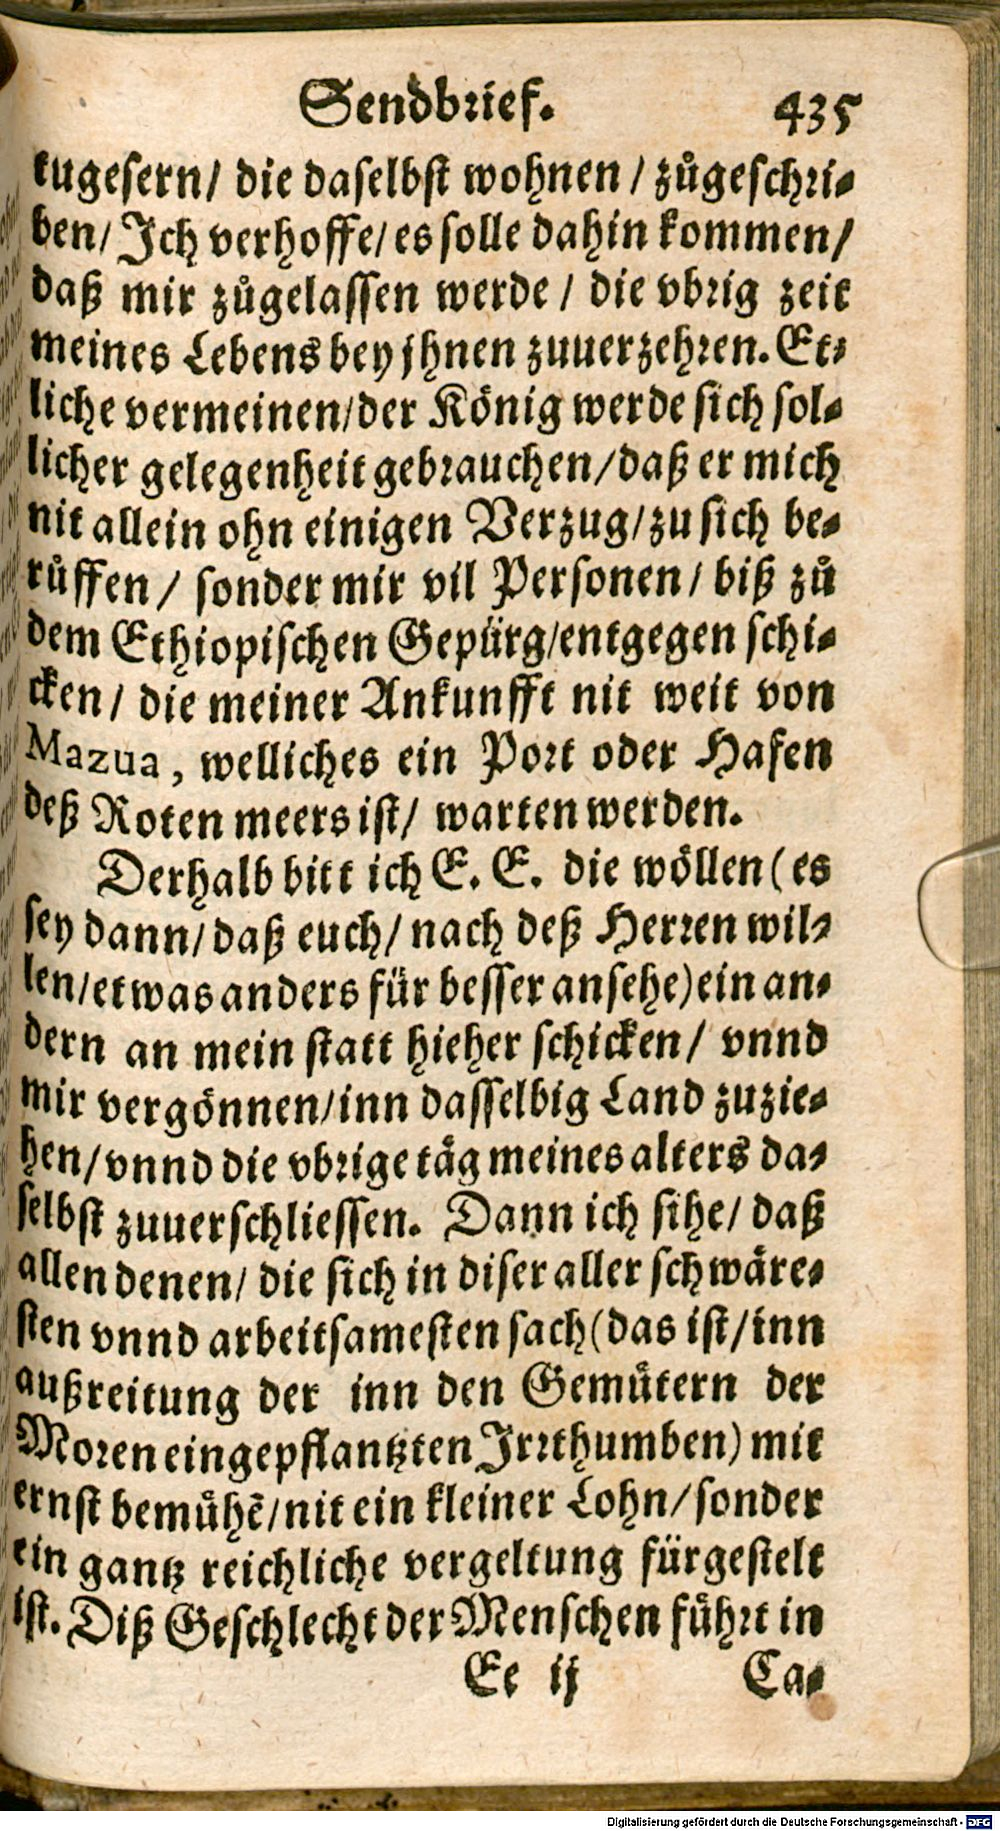 Sendbrief. 435
tugesern/ die daselbst wohnen / zůgeschri-
ben/ Ich verhoffe/ es solle dahin kommen/
daß mir zůgelassen werde / die vbrig zeit
meines Lebens bey jhnen zuuerzehren. Et-
liche vermeinen/der König werde sich sol-
licher gelegenheit gebrauchen/daß er mich
nit allein ohn einigen Verzug/zu sich be-
růffen / sonder mir vil Personen / biß zů
dem Ethiopischen Gepürg/entgegen schi-
cken / die meiner Ankunfft nit weit von
Mazua, welliches ein Port oder Hafen
deß Roten meers ist/ warten werden.
Derhalb bitt ich E. E. die wöllen (es
sey dann/daß euch/ nach deß Herren wil-
len/etwas anders für besser ansehe) ein an-
dern an mein statt hieher schicken/ vnnd
mir vergönnen/inn dasselbig Land zuzie-
hen/vnnd die vbrige täg meines alters da-
selbst zuuerschliessen. Dann ich sihe/ daß
allen denen/ die sich in diser aller schwäre-
sten vnnd arbeitsamesten sach (das ist/inn
außreitung der inn den Gemütern der
Moren eingepflantzten Irrthumben) mit
ernst bemühẽ/nit ein kleiner Lohn/sonder
ein gantz reichliche vergeltung fürgestelt
ist. Diß Geschlecht der Menschen führt in
Ee ij Ca-
Digitalisierung gefördert durch die Deutsche Forschungsgemeinschaft - DFG